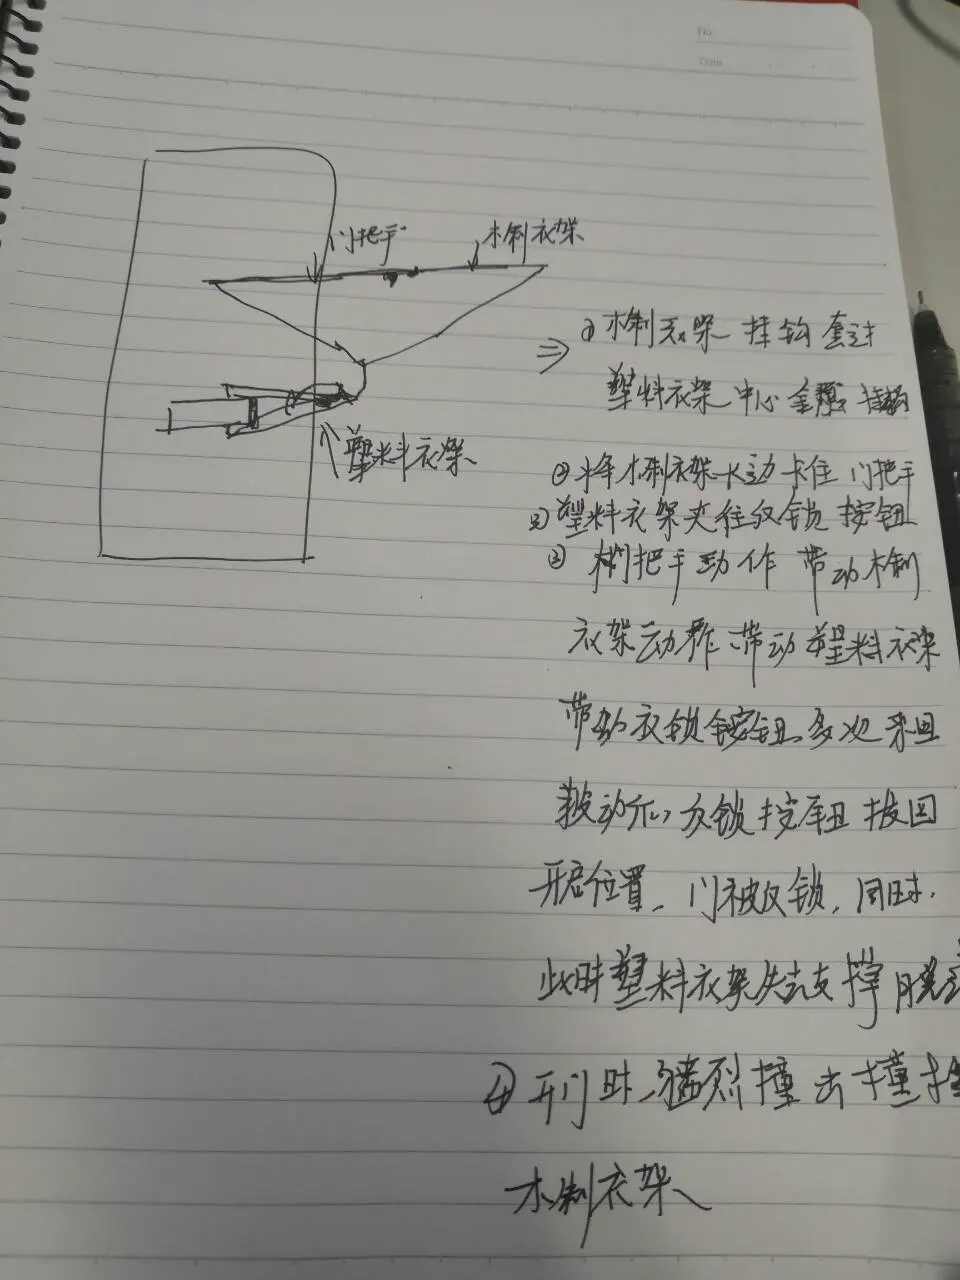 No.
Date
门把手
木制衣架
塑料衣架
① 木制衣架 挂钩 套过
塑料衣架 中心金属 挂钩
② 将木制衣架长边卡住 门把手
③ 塑料衣架夹住反锁 按钮
③ 门把手动作 带动木制
衣架动作 带动塑料衣架
带动反锁按钮 多次
被动 反锁按钮 拨回
开启位置，门被反锁，同时，
此时塑料衣架失去支撑 脱
④ 开门时 猛烈撞击 撞
木制衣架